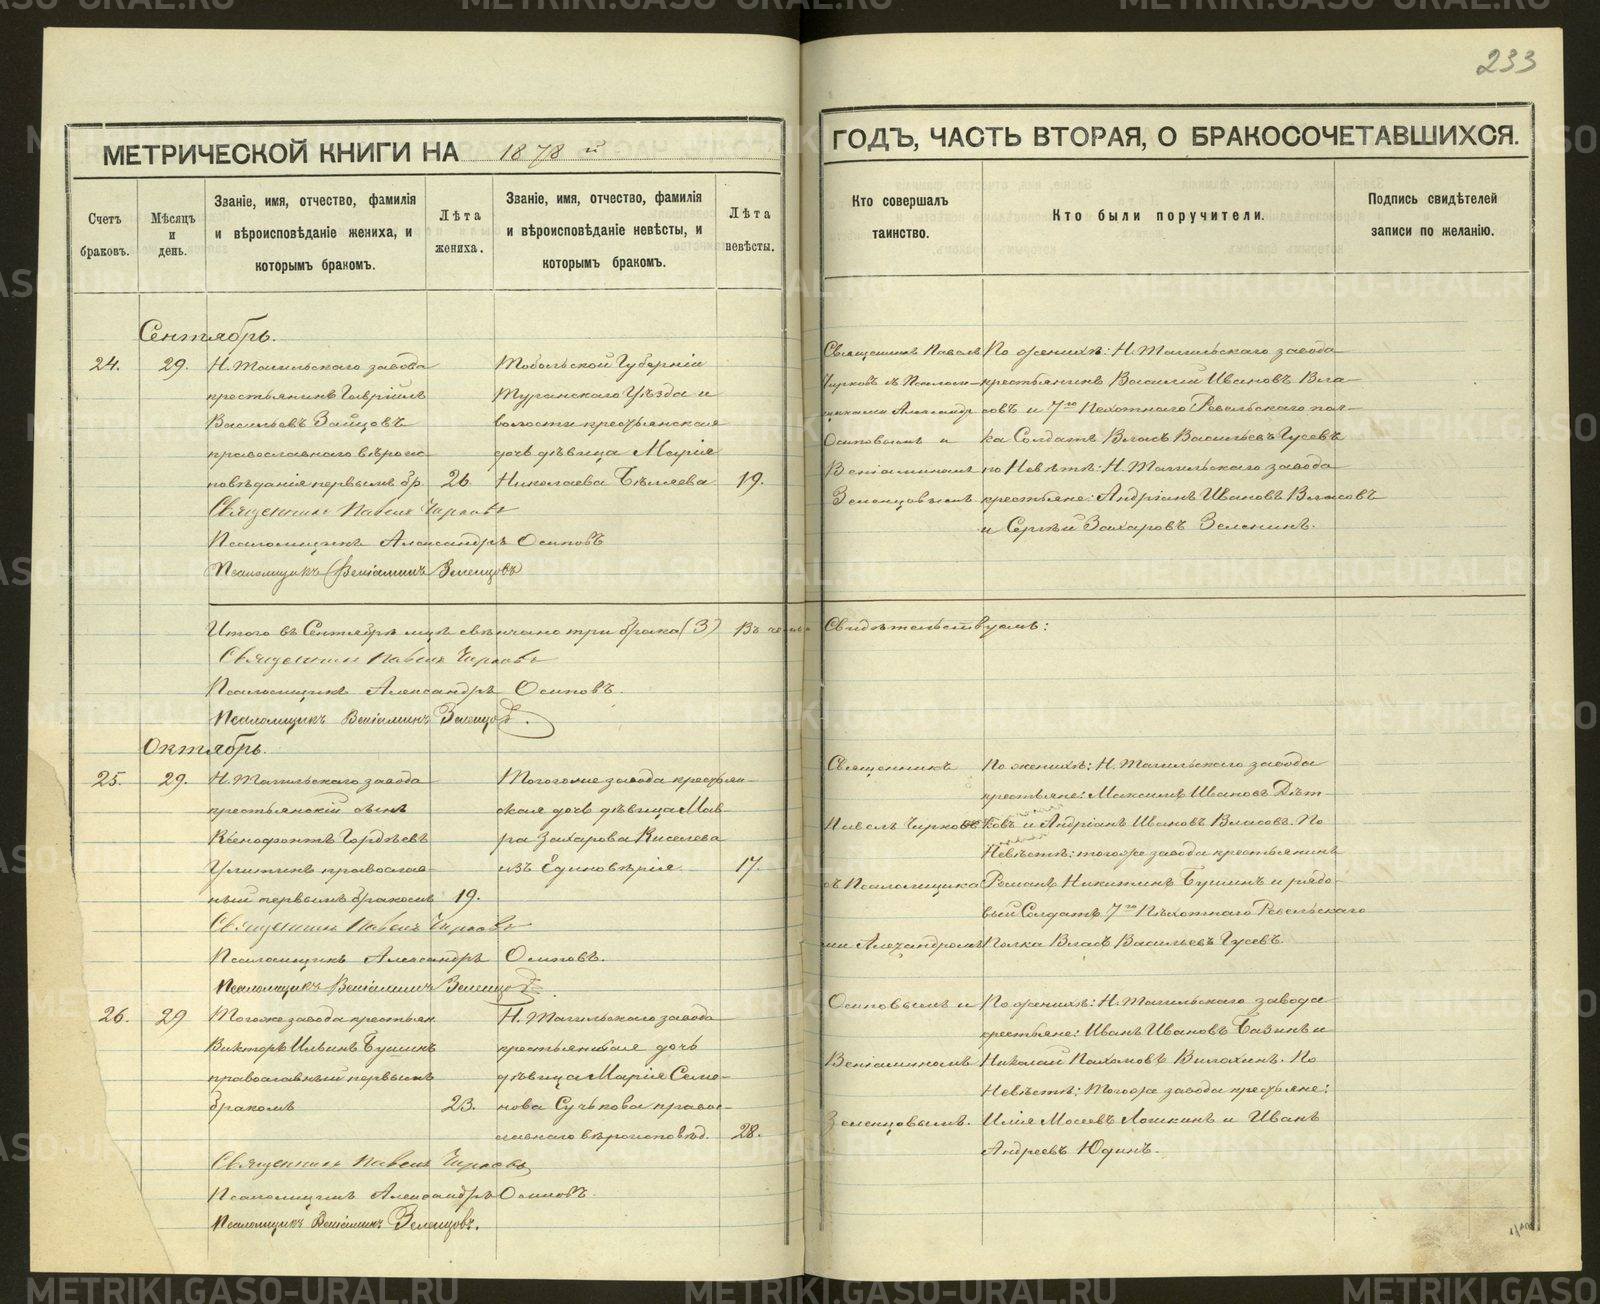 233
МЕТРИЧЕСКОЙ КНИГИ НА 1878 й
ГОДЪ, ЧАСТЬ ВТОРАЯ, О БРАКОСОЧЕТАВШИХСЯ.
Счетъ браковъ.
Мѣсяцъ и день.
Званіе, имя, отчество, фамилія и вѣроисповѣданіе жениха, и которымъ бракомъ.
Лѣта жениха.
Званіе, имя, отчество, фамилія и вѣроисповѣданіе невѣсты, и которымъ бракомъ.
Лѣта невѣсты.
Кто совершалъ таинство.
Кто были поручители.
Подпись свидѣтелей записи по желанію.
Сентябрь.
24. 29.
Н. Тагильскаго завода
крестьянинъ Гавріилъ
Васильевъ Зайцовъ
православнаго вѣроис
повѣданія первымъ бр. 26.
Тобольской Губерніи
Туринскаго Уѣзда и
волости крестьянская
дочь дѣвица Марія
Николаева Бѣляева 19.
Священникъ Павелъ
Чирковъ съ Псалом-
щиками Александр
Осиповымъ и
Веніаминомъ
Зеленцовымъ
По женихѣ: Н. Тагильскаго завода
крестьянинъ Василій Ивановъ Вла-
совъ и 7го Пехотнаго Ревельскаго пол-
ка Солдатъ Власъ Васильевъ Гусевъ
по Невѣстѣ: Н. Тагильскаго завода
крестьяне: Андріанъ Ивановъ Власовъ
и Сергѣй Захаровъ Зеленинъ.
Священникъ Павелъ Чирковъ
Псаломщикъ Александръ Осиповъ
Псаломщикъ Веніаминъ Зеленцовъ
Итого въ Сентябрѣ мцѣ свѣнчано три брака (3) Въ чемъ Свидѣтельствуемъ:
Священникъ Павелъ Чирковъ
Псаломщикъ Александръ Осиповъ.
Псаломщикъ Веніаминъ Зеленцовъ.
Октябрь.
25. 29.
Н. Тагильскаго завода
крестьянскій сынъ
Ксенофонтъ Гордѣевъ
Улитинъ православ-
ный первымъ бракомъ 19.
Тогоже завода крестьян-
ская дочь дѣвица Мав-
ра Захарова Киселева
изъ Единовѣрія 17.
Священникъ
Павелъ Чирковъ
съ Псаломщика
ми Алечандромъ
По женихѣ: Н. Тагильскаго завода
крестьяне: Максимъ Ивановъ Дѣт-
ковъ и Андріанъ Ивановъ Власовъ. По
Невѣстѣ: тогоже завода крестьянинъ
Романъ Никитинъ Бушинъ и рядо-
вый Солдатъ 7го Пѣхотнаго Ревельскаго
Полка Власъ Васильевъ Гусевъ.
Священникъ Павелъ Чирковъ
Псаломщикъ Александръ Осиповъ.
Псаломщикъ Веніаминъ Зеленцовъ.
26. 29
Тогоже завода крестьян.
Викторъ Ильинъ Бушинъ
православный первымъ
бракомъ 23.
Н. Тагильскаго завода
крестьянская дочь
дѣвица Марія Семе-
нова Сучкова право-
славнаго вѣроисповѣд. 28.
Осиповымъ и
Веніаминомъ
Зеленцовымъ.
По женихѣ: Н. Тагильскаго завода
крестьяне: Иванъ Ивановъ Базинъ и
Николай Пахомовъ Вилохинъ. По
Невѣстѣ: Тогоже завода крестьяне:
Илія Мосеевъ Лошкинъ и Иванъ
Андреевъ Юдинъ.
Священникъ Павелъ Чирковъ
Псаломщикъ Александръ Осиповъ.
Псаломщикъ Веніаминъ Зеленцовъ.
METRIKI.GASO-URAL.RU